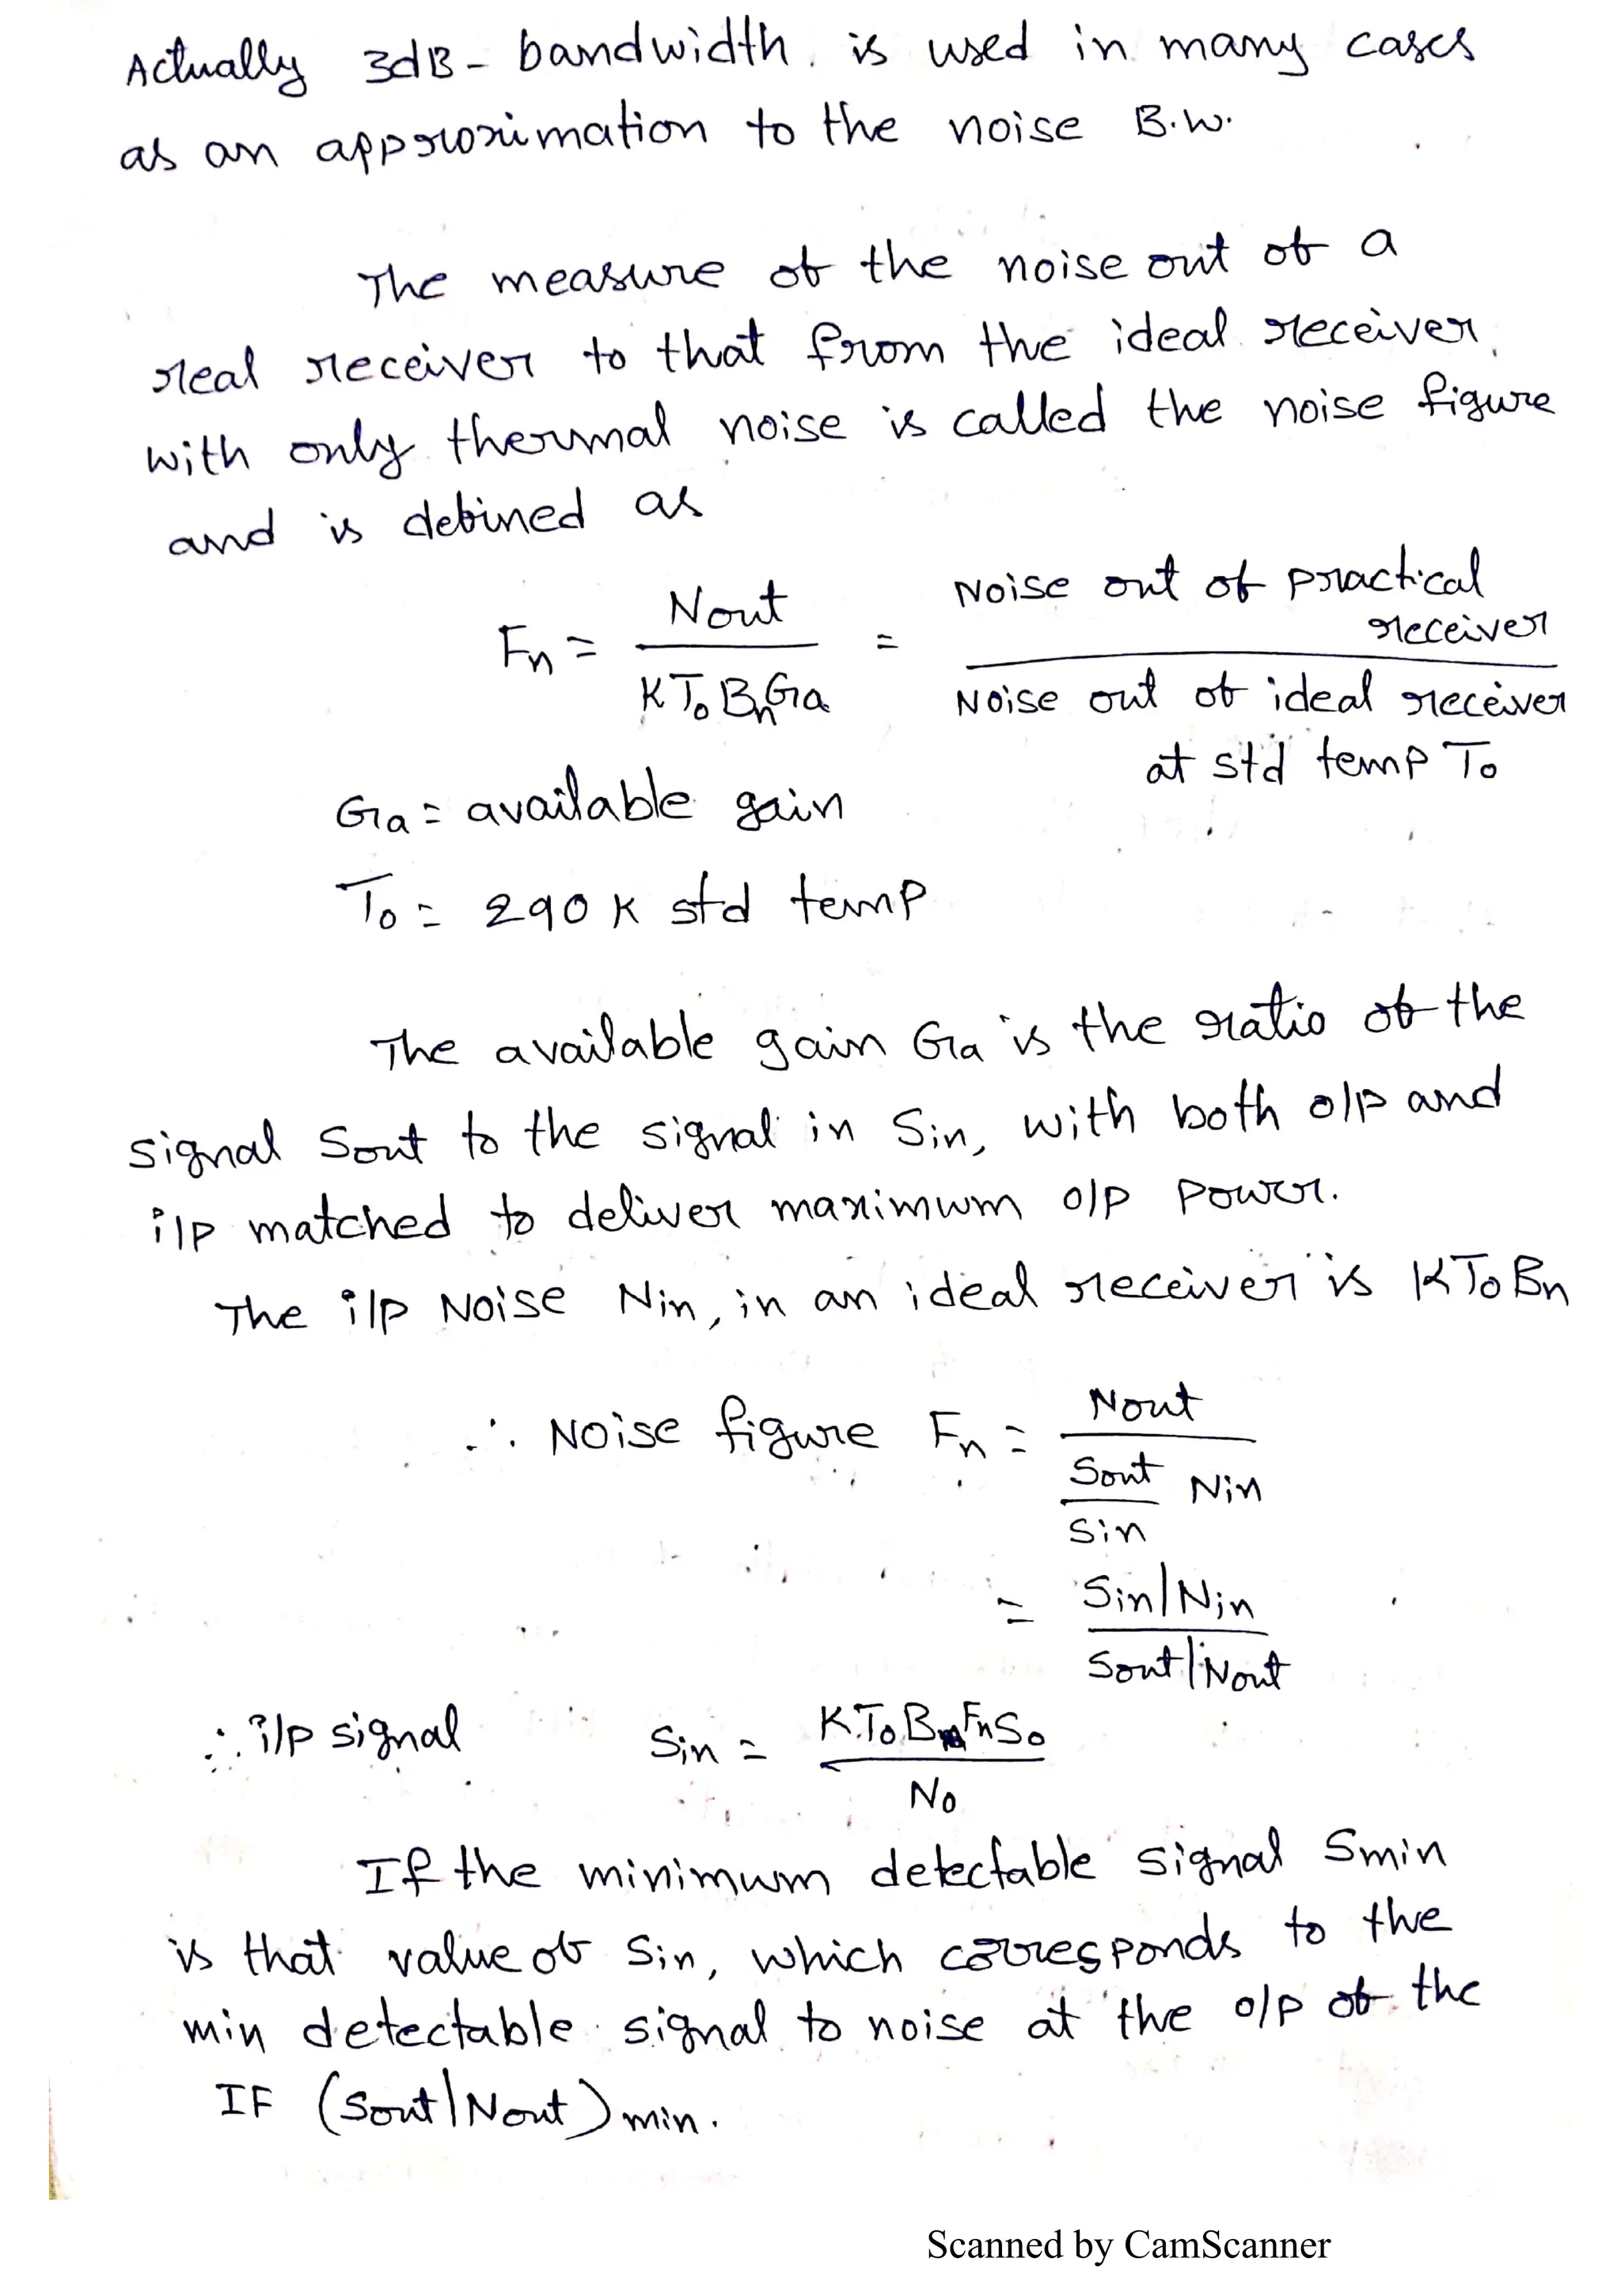 Actually 3dB - bandwidth is used in many cases
as an approximation to the noise B.W.
The measure of the noise out of a
real receiver to that from the ideal receiver
with only thermal noise is called the noise figure
and is defined as
Fn = Nout / KToBnGa = Noise out of practical receiver / Noise out of ideal receiver at std temp To
Ga = available gain
To = 290 K std temp
The available gain Ga is the ratio of the
signal Sout to the signal in Sin, with both o/p and
i/p matched to deliver maximum o/p power.
The i/p Noise Nin, in an ideal receiver is KToBn
∴ Noise figure Fn = Nout / (Sout/Sin) Nin
= Sin/Nin / Sout/Nout
∴ i/p signal Sin = KToBnFnSo / No
If the minimum detectable signal Smin
is that value of Sin, which corresponds to the
min detectable signal to noise at the o/p of the
IF (Sout/Nout)min.
Scanned by CamScanner